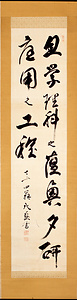 旦学理科之蘊奥夕研
應用之工程